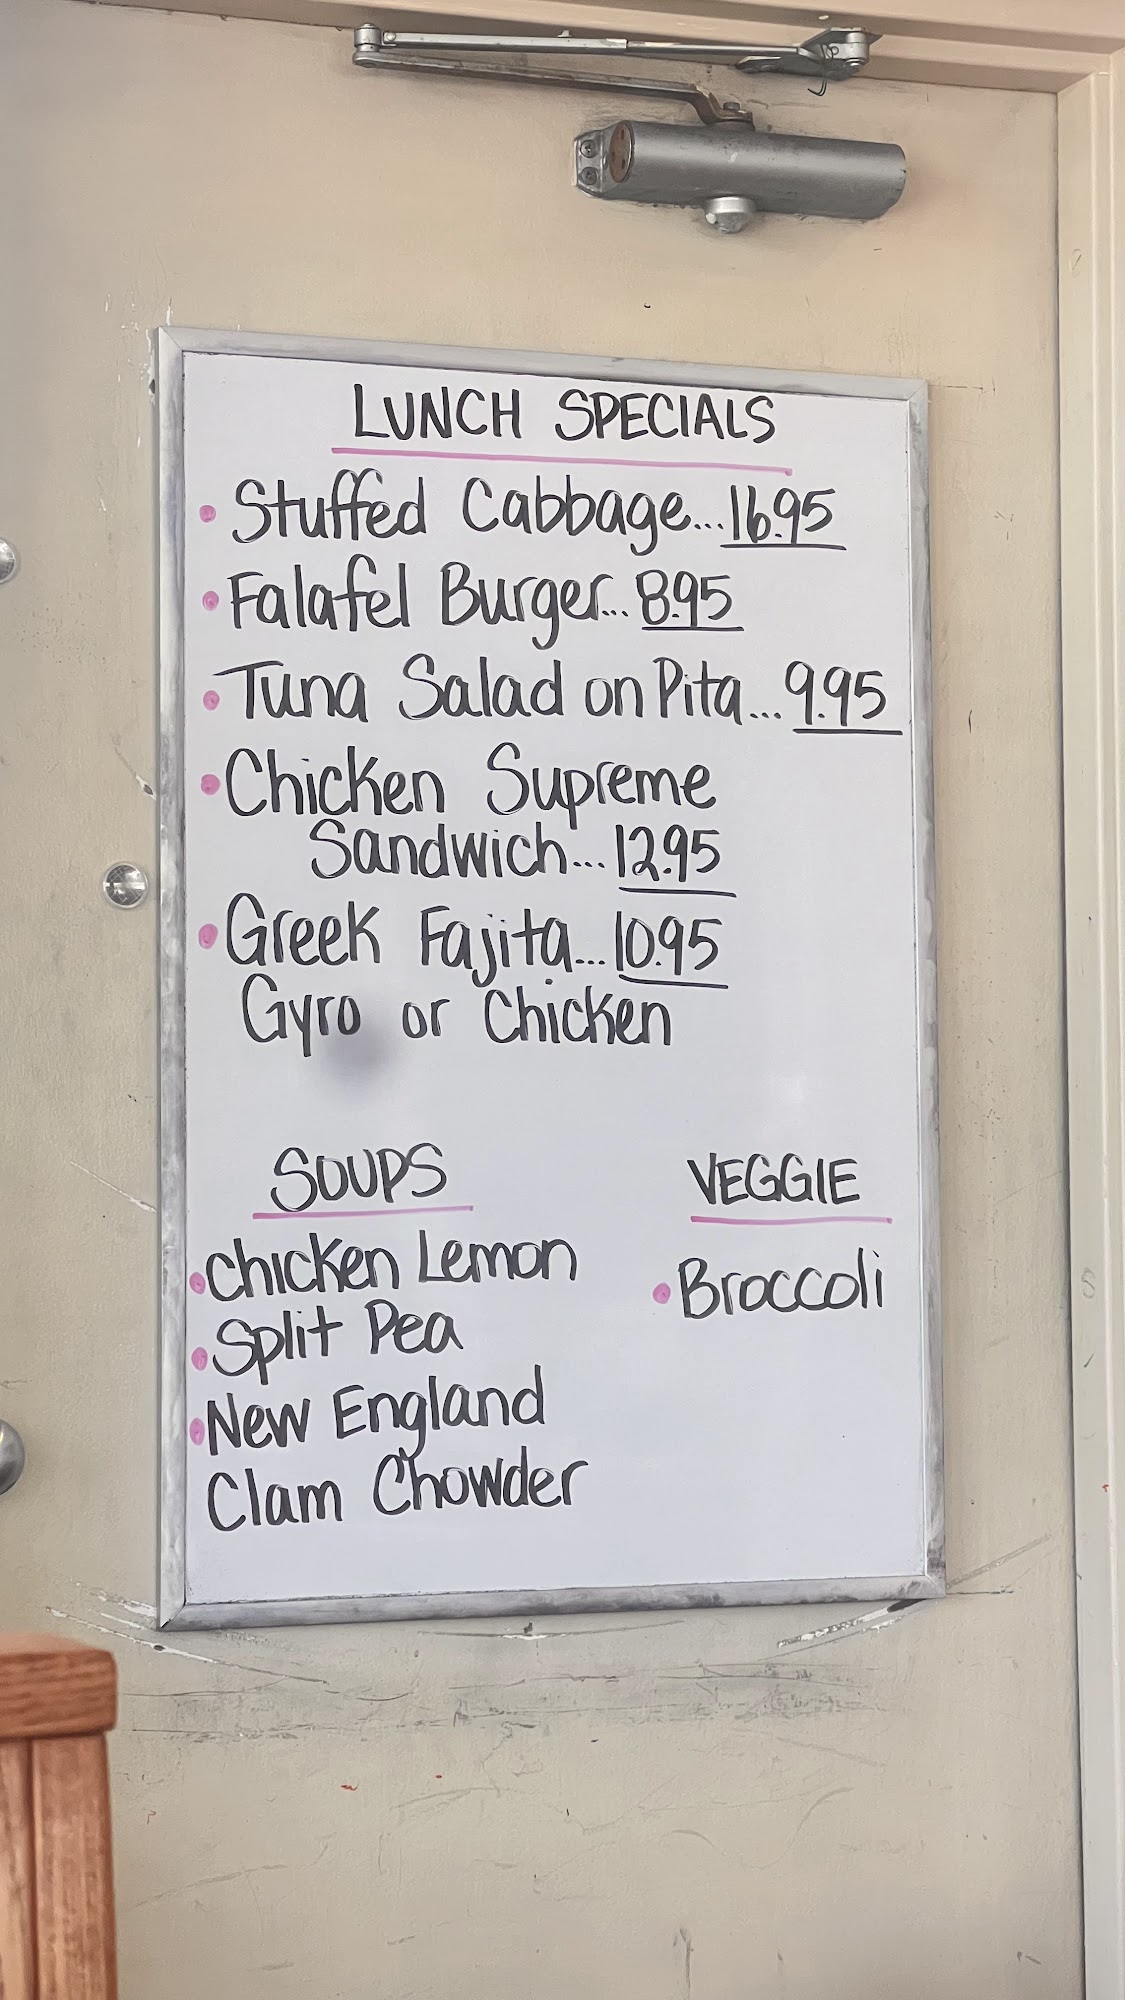 LUNCH SPECIALS
• Stuffed Cabbage...16.95
• Falafel Burger...8.95
• Tuna Salad on Pita...9.95
• Chicken Supreme
Sandwich...12.95
• Greek Fajita...10.95
Gyro or Chicken
SOUPS
• Chicken Lemon
• Split Pea
• New England
Clam Chowder
VEGGIE
• Broccoli